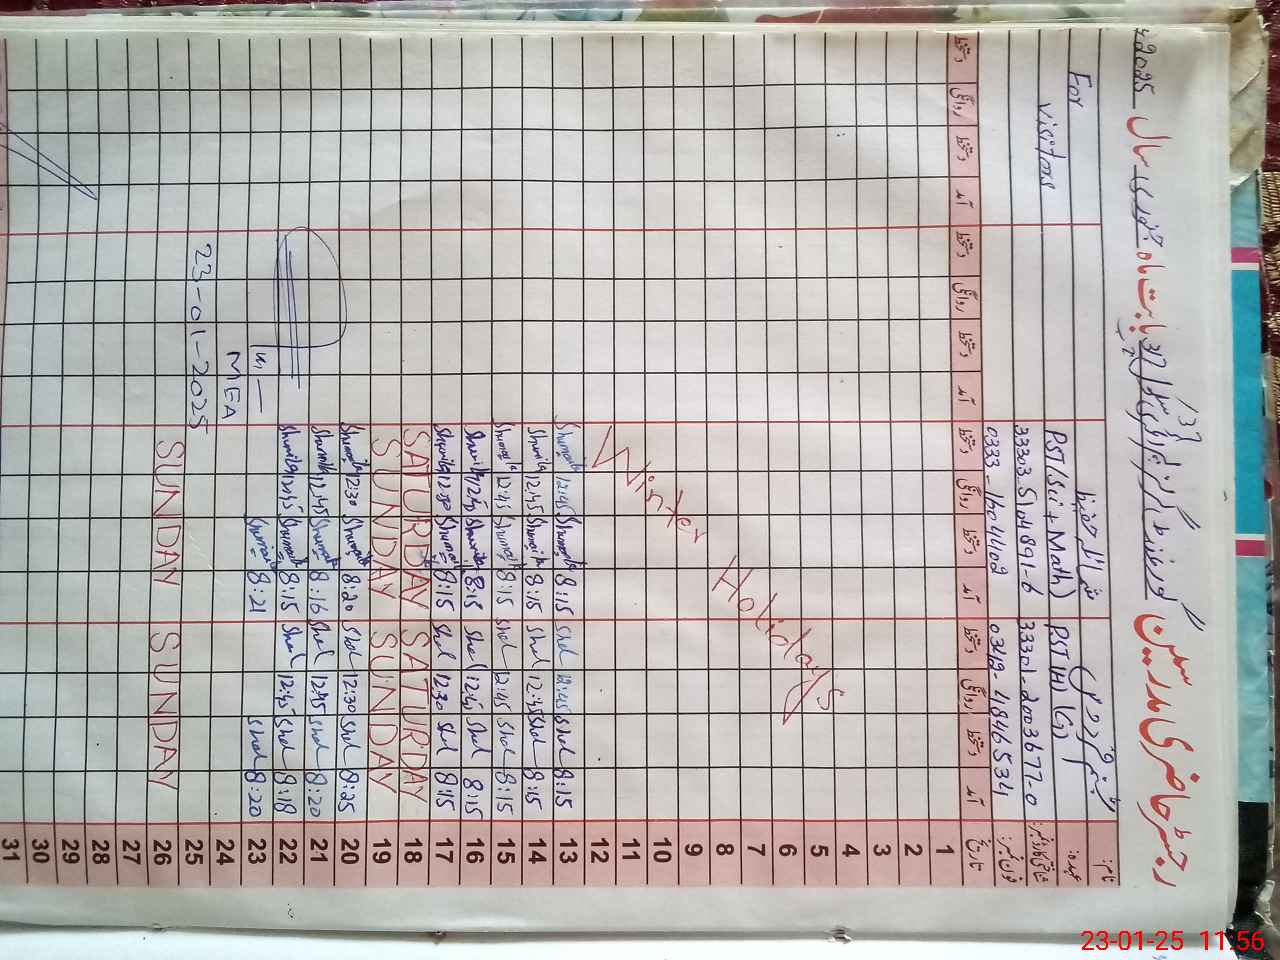 رجسٹر حاضری مدرسین گورنمنٹ گرلز پرائمری سکول بابت ماہ جنوری سال 2025ء
نام:
شمائلہ حفیظ
For
عہدہ:
PST (H) (G)
PST (Sci + Math)
visitors
شناختی کارڈ نمبر:
33301-2003677-0
33303-5104891-6
فون نمبر:
0342-4846534
تاریخ
آمد دستخط روانگی دستخط آمد دستخط روانگی دستخط آمد دستخط روانگی دستخط آمد دستخط روانگی دستخط
1
2
3
4
5
6
7
8
9
10
11
12
Winter Holidays
13 8:15 Shal 12:45 Shal 8:15 Shumaila 12:45 Shumaila
14 8:15 Shal 12:45 Shal 8:15 Shumaila 12:45 Shumaila
15 8:15 Shal 12:45 Shal 8:15 Shumaila 12:45 Shumaila
16 8:15 Shal 12:45 Shal 8:15 Shumaila 12:45 Shumaila
17 8:15 Shal 12:30 Shal 8:15 Shumaila 12:30 Shumaila
18 SATURDAY SATURDAY
19 SUNDAY SUNDAY
20 8:25 Shal 12:30 Shal 8:20 Shumaila 12:30 Shumaila
21 8:20 Shal 12:45 Shal 8:16 Shumaila 12:45 Shumaila
22 8:18 Shal 12:45 Shal 8:15 Shumaila 12:45 Shumaila
23 8:20 Shal 8:21 Shumaila
24 MEA
25 23-01-2025
26 SUNDAY SUNDAY
27
28
29
30
31
23-01-25 11:56